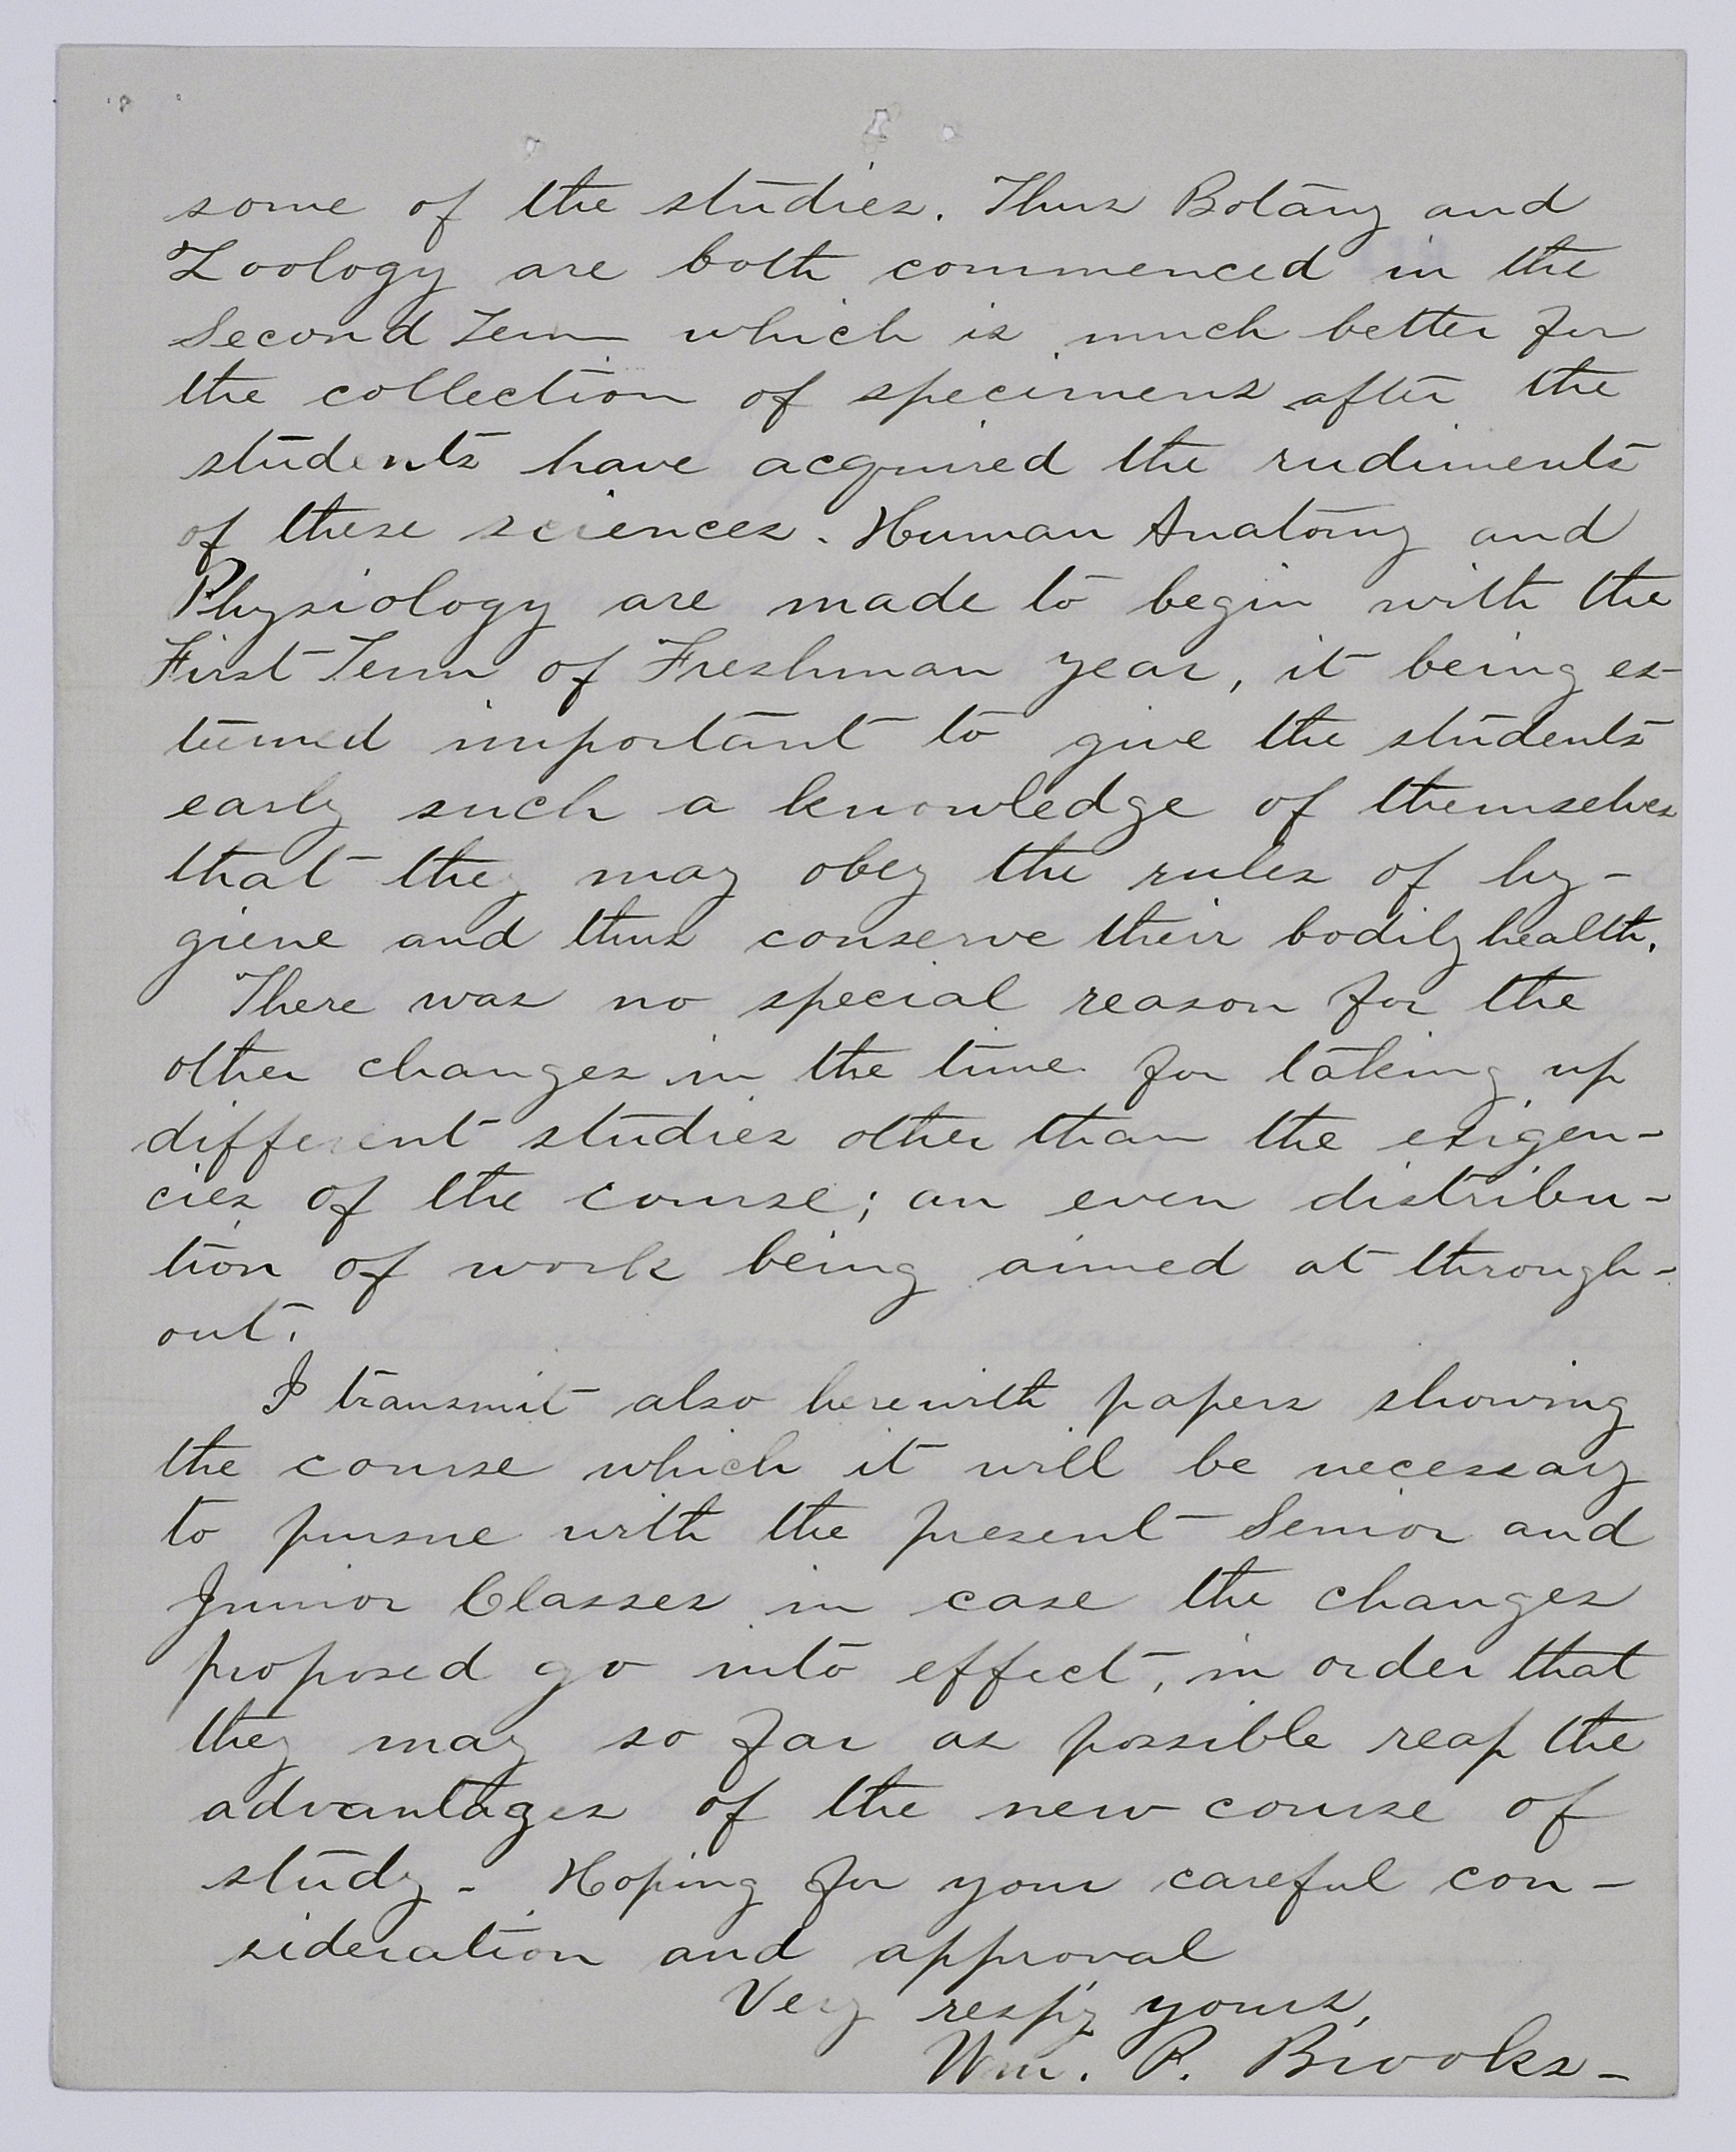 some of the studies. Thus Botany and
Zoology are both commenced in the
Second Term which is much better for
the collection of specimens after the
students have acquired the rudiments
of these sciences. Human Anatomy and
Physiology are made to begin with the
First Term of Freshman year, it being es-
teemed important to give the students
early such a knowledge of themselves
that they may obey the rules of hy-
giene and thus conserve their bodily health.
There was no special reason for the
other changes in the time for taking up
different studies other than the exigen-
cies of the course; an even distribu-
tion of work being aimed at through-
out.
I transmit also herewith papers showing
the course which it will be necessary
to pursue with the present Senior and
Junior Classes in case the changes
proposed go into effect, in order that
they may so far as possible reap the
advantages of the new course of
study - Hoping for your careful con-
sideration and approval
Very resp'y yours,
Wm. P. Brooks -